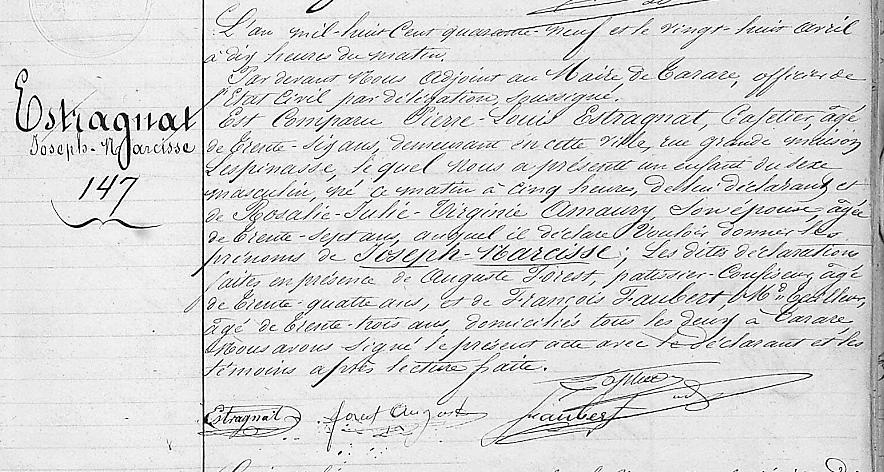 L'an mil-huit Cent quarante-neuf et le vingt-huit avril
à dix heures du matin.
Par devant Nous Adjoint au Maire de Tarare, officier de
l'Etat Civil par délégation, soussigné.
Est Comparu Pierre-Louis Estragnat, Cafetier, âgé
de trente-six ans, demeurant en cette ville, rue grande maison
Lespinasse, lequel Nous a présenté un enfant du sexe
masculin, né ce matin à cinq heures, de lui déclarant et
de Rosalie-Julie-Virginie Amaury, son épouse, âgée
de trente-sept ans, auquel il déclare Vouloir donner les
prénoms de Joseph-Narcisse; Les dites déclarations
faites en présence de Auguste Forest, patissier-Confiseur, âgé
de trente-quatre ans, et de François Faubert, Md
âgé de trente-trois ans, domiciliés tous les deux à Tarare,
Nous avons signé le présent acte avec le déclarant et les
témoins après lecture faite.
Estragnat
Joseph-Narcisse
147
Estragnat forest august faubert